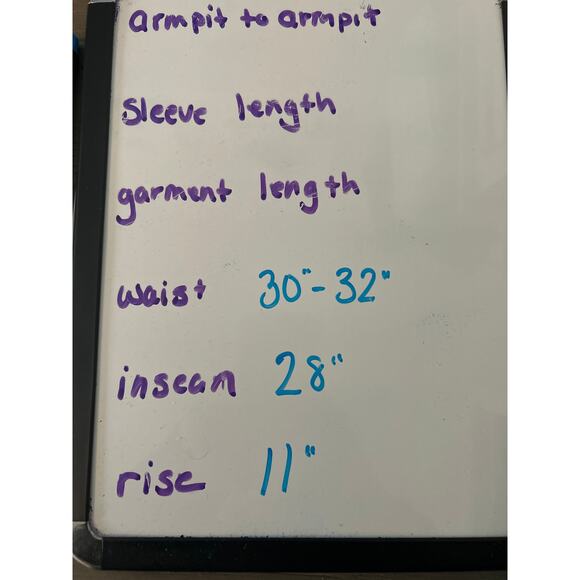 armpit to armpit
sleeve length
garment length
waist 30"-32"
inseam 28"
rise 11"